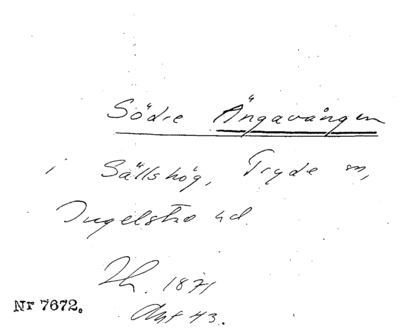 Södre Ängavången
i Sällshög, Tryde sn,
Ingelsta hd.
Th. 1871
Akt 43.
Nr 7672.